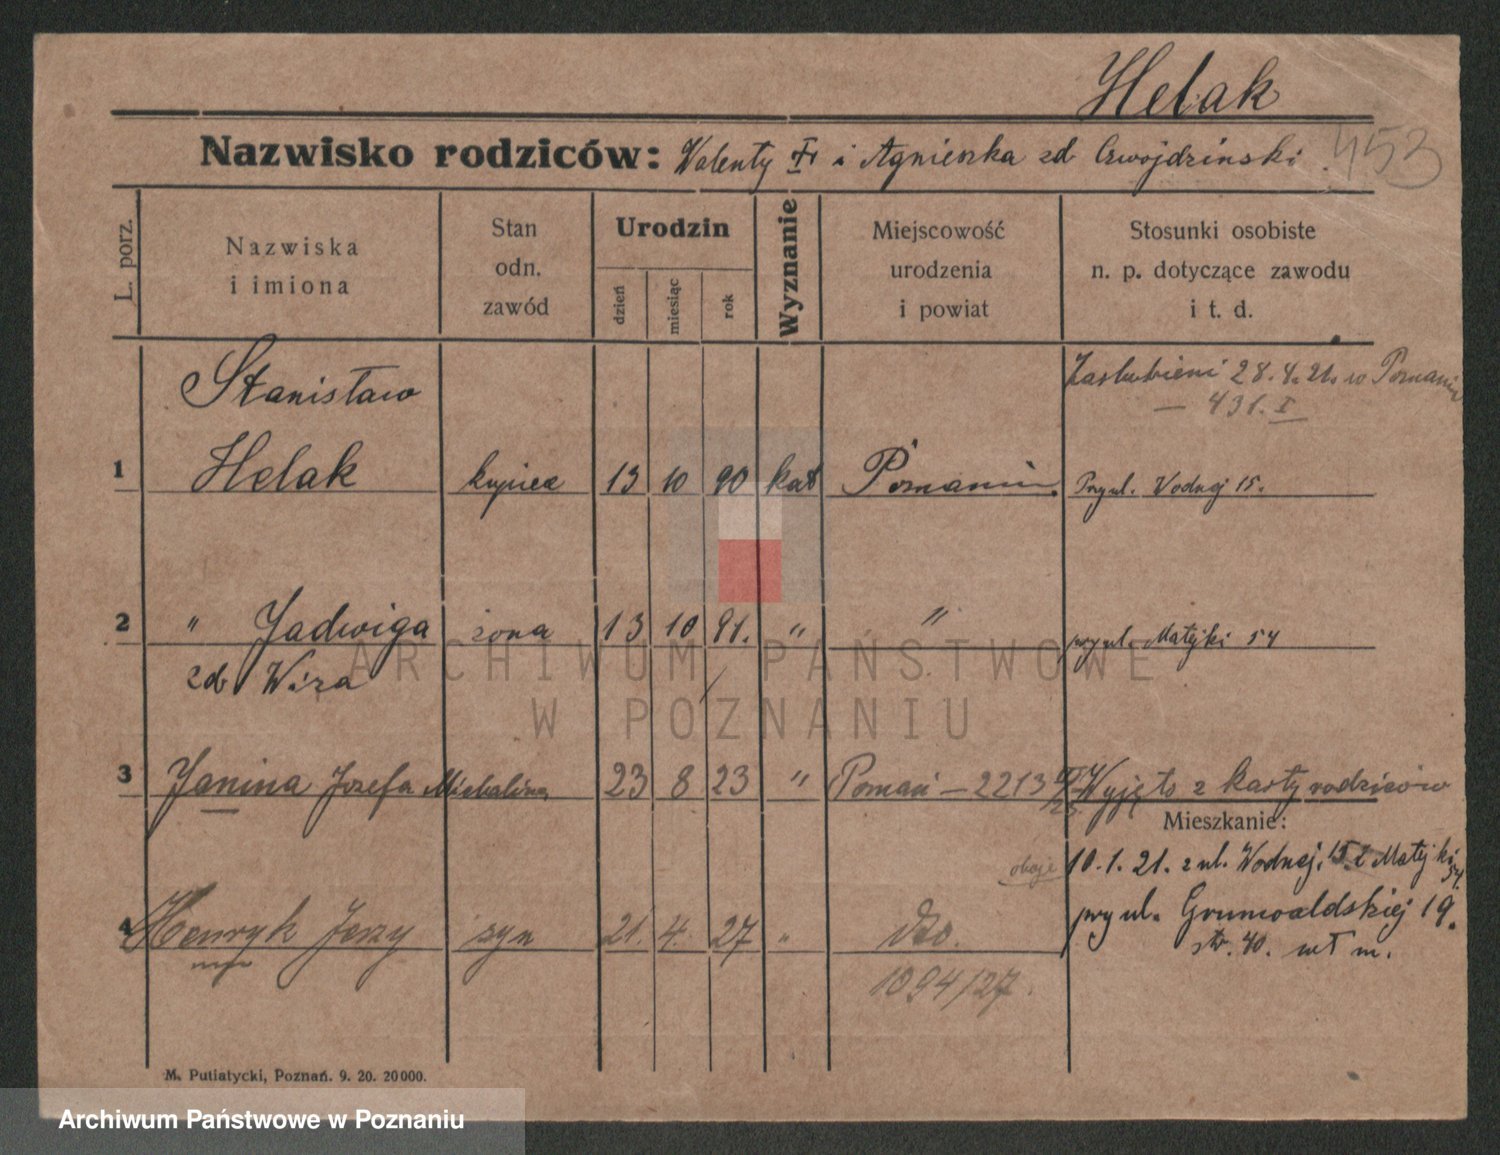 Helak
453
Nazwisko rodziców: Walenty i Agnieszka zd Cwojdzinski
L. porz.
Nazwiska
i imiona
Stan
odn.
zawód
Urodzin
dzień
miesiąc
rok
Wyznanie
Miejscowość
urodzenia
i powiat
Stosunki osobiste
n. p. dotyczące zawodu
i t. d.
Zaslubieni 28. 4. 21. w Poznaniu
— 431. I
Stanisław
1 Helak kupiec 13 10 90 kat Poznaniu. Przy ul. Wodnej 15.
2 " Jadwiga żona 13 10 91. " " przy ul. Matejki 54
zd Wiza
3 Janina Jozefa Michalina 23 8 23 " Poznań — 2213 Wyjęto z karty rodziców
Mieszkanie:
10. 1. 21. z ul. Wodnej. 15 i Matejki 54.
4 Henryk Jerzy syn 21. 4. 27 " dto. przy ul. Grunwaldskiej 19.
str. 40. wł m.
1094/27.
M. Putiatycki, Poznań. 9. 20. 20 000.
ARCHIWUM PAŃSTWOWE
W POZNANIU
Archiwum Państwowe w Poznaniu